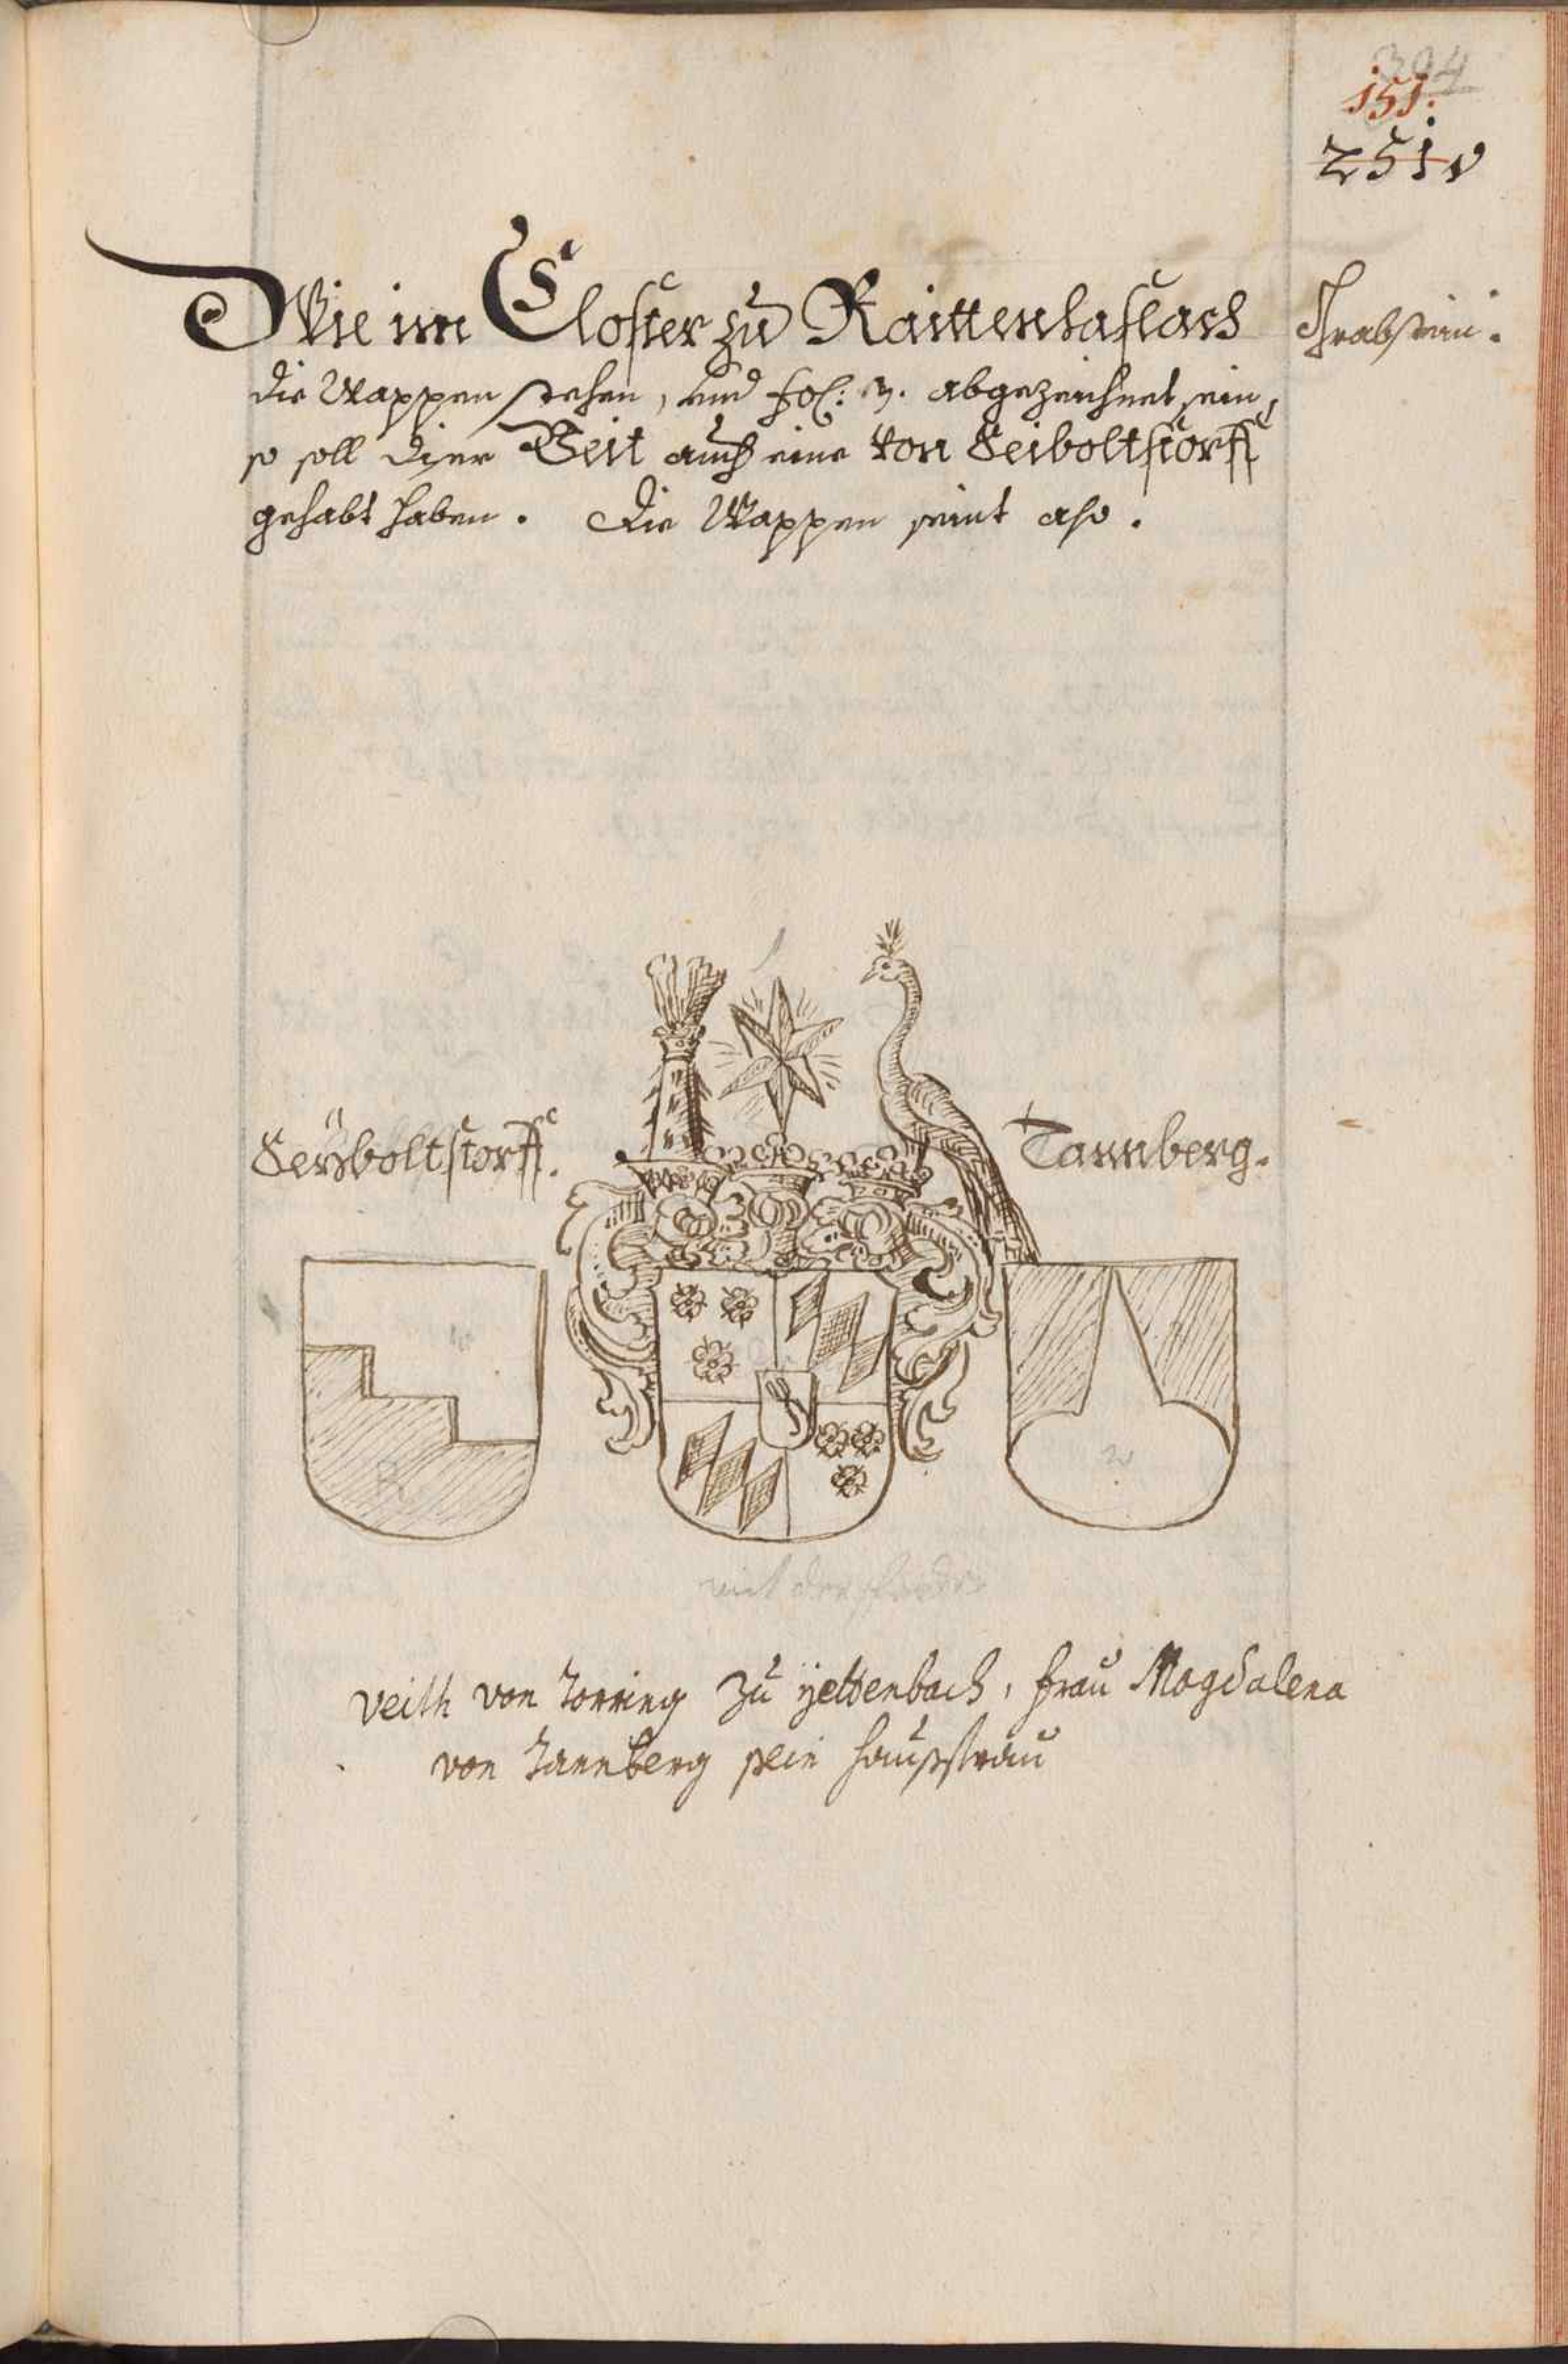 394
151.
251v
Wie im Closter zu Raittenhaslach
Grabstain.
die Wappen stehen, und fol: 3. abgezaichnet sein,
so soll diser Veit auch eine von Seiboltstorff
gehabt haben. Die Wappen seint also.
Seyboltstorff.
Tannberg.
w
R
w
mit der
Veith von Torring zu Yettenbach, frau Magdalena
von Tannberg sein haußfrau